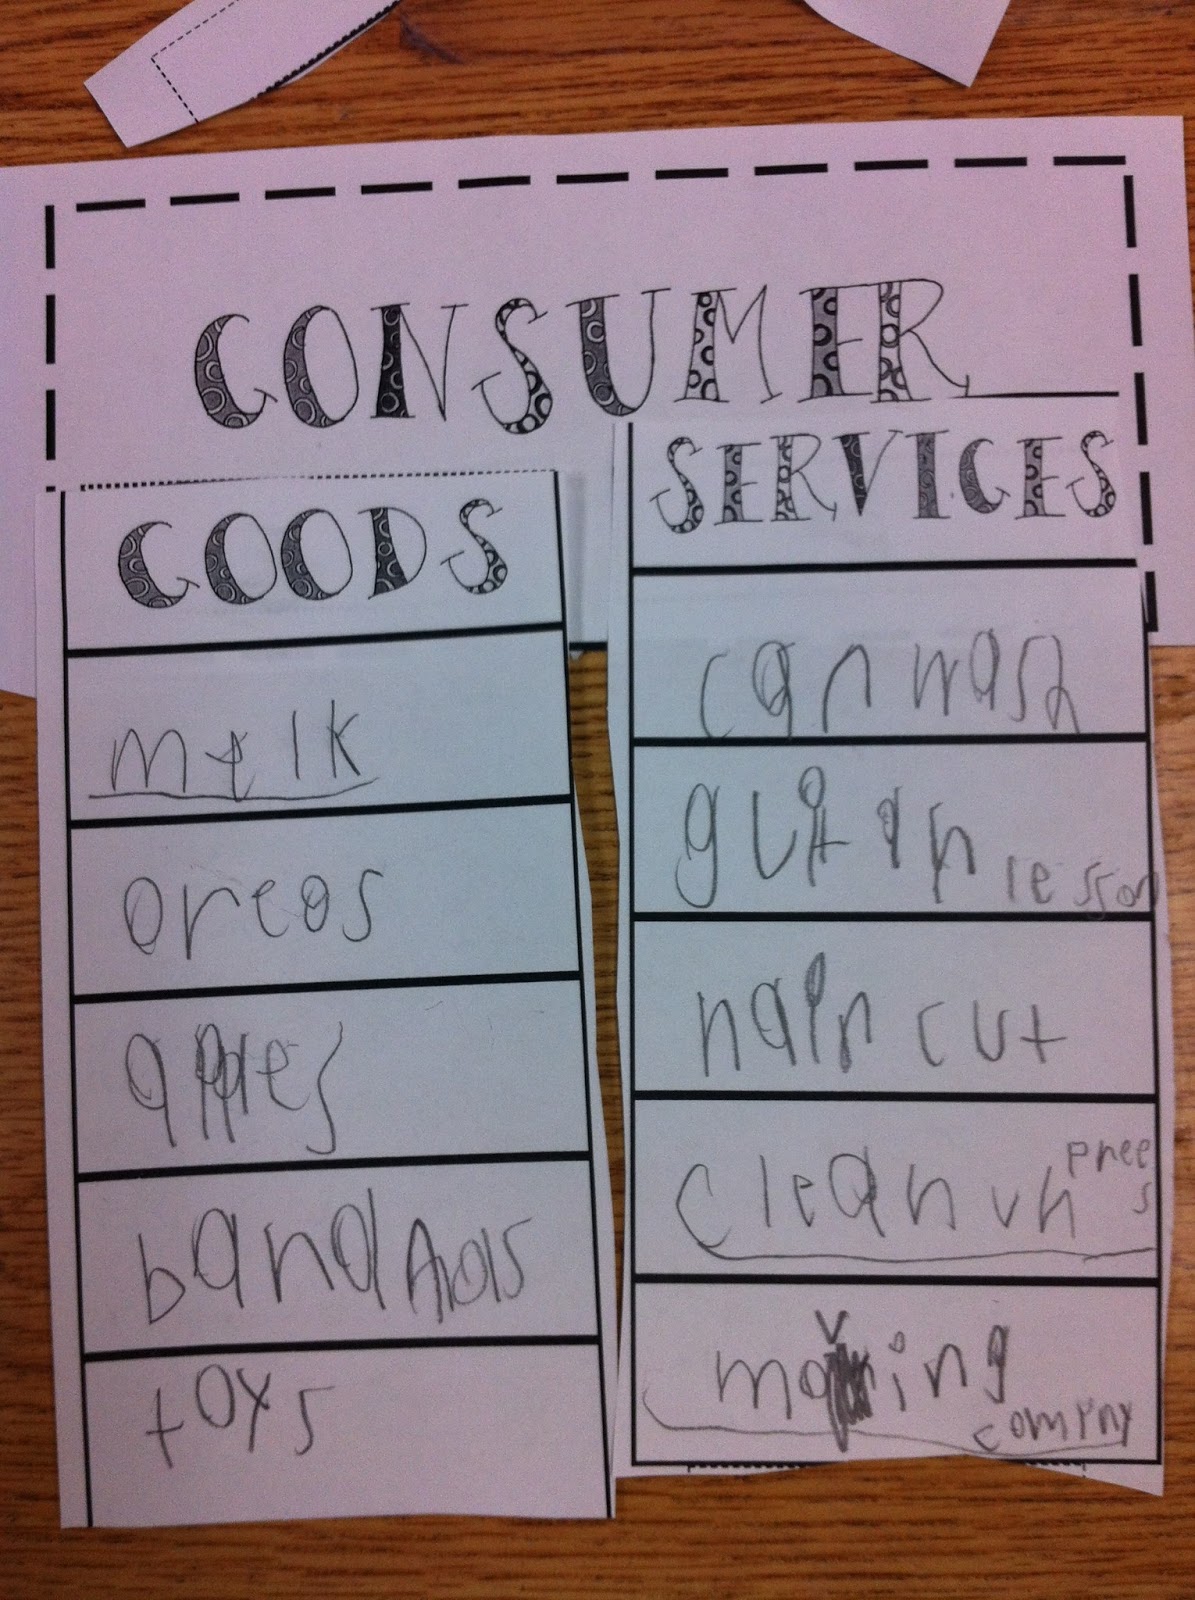 CONSUMER
GOODS
melk
oreos
apples
bandAids
toys
SERVICES
car wash
guitar
lesson
hair cut
clean
moving
compny